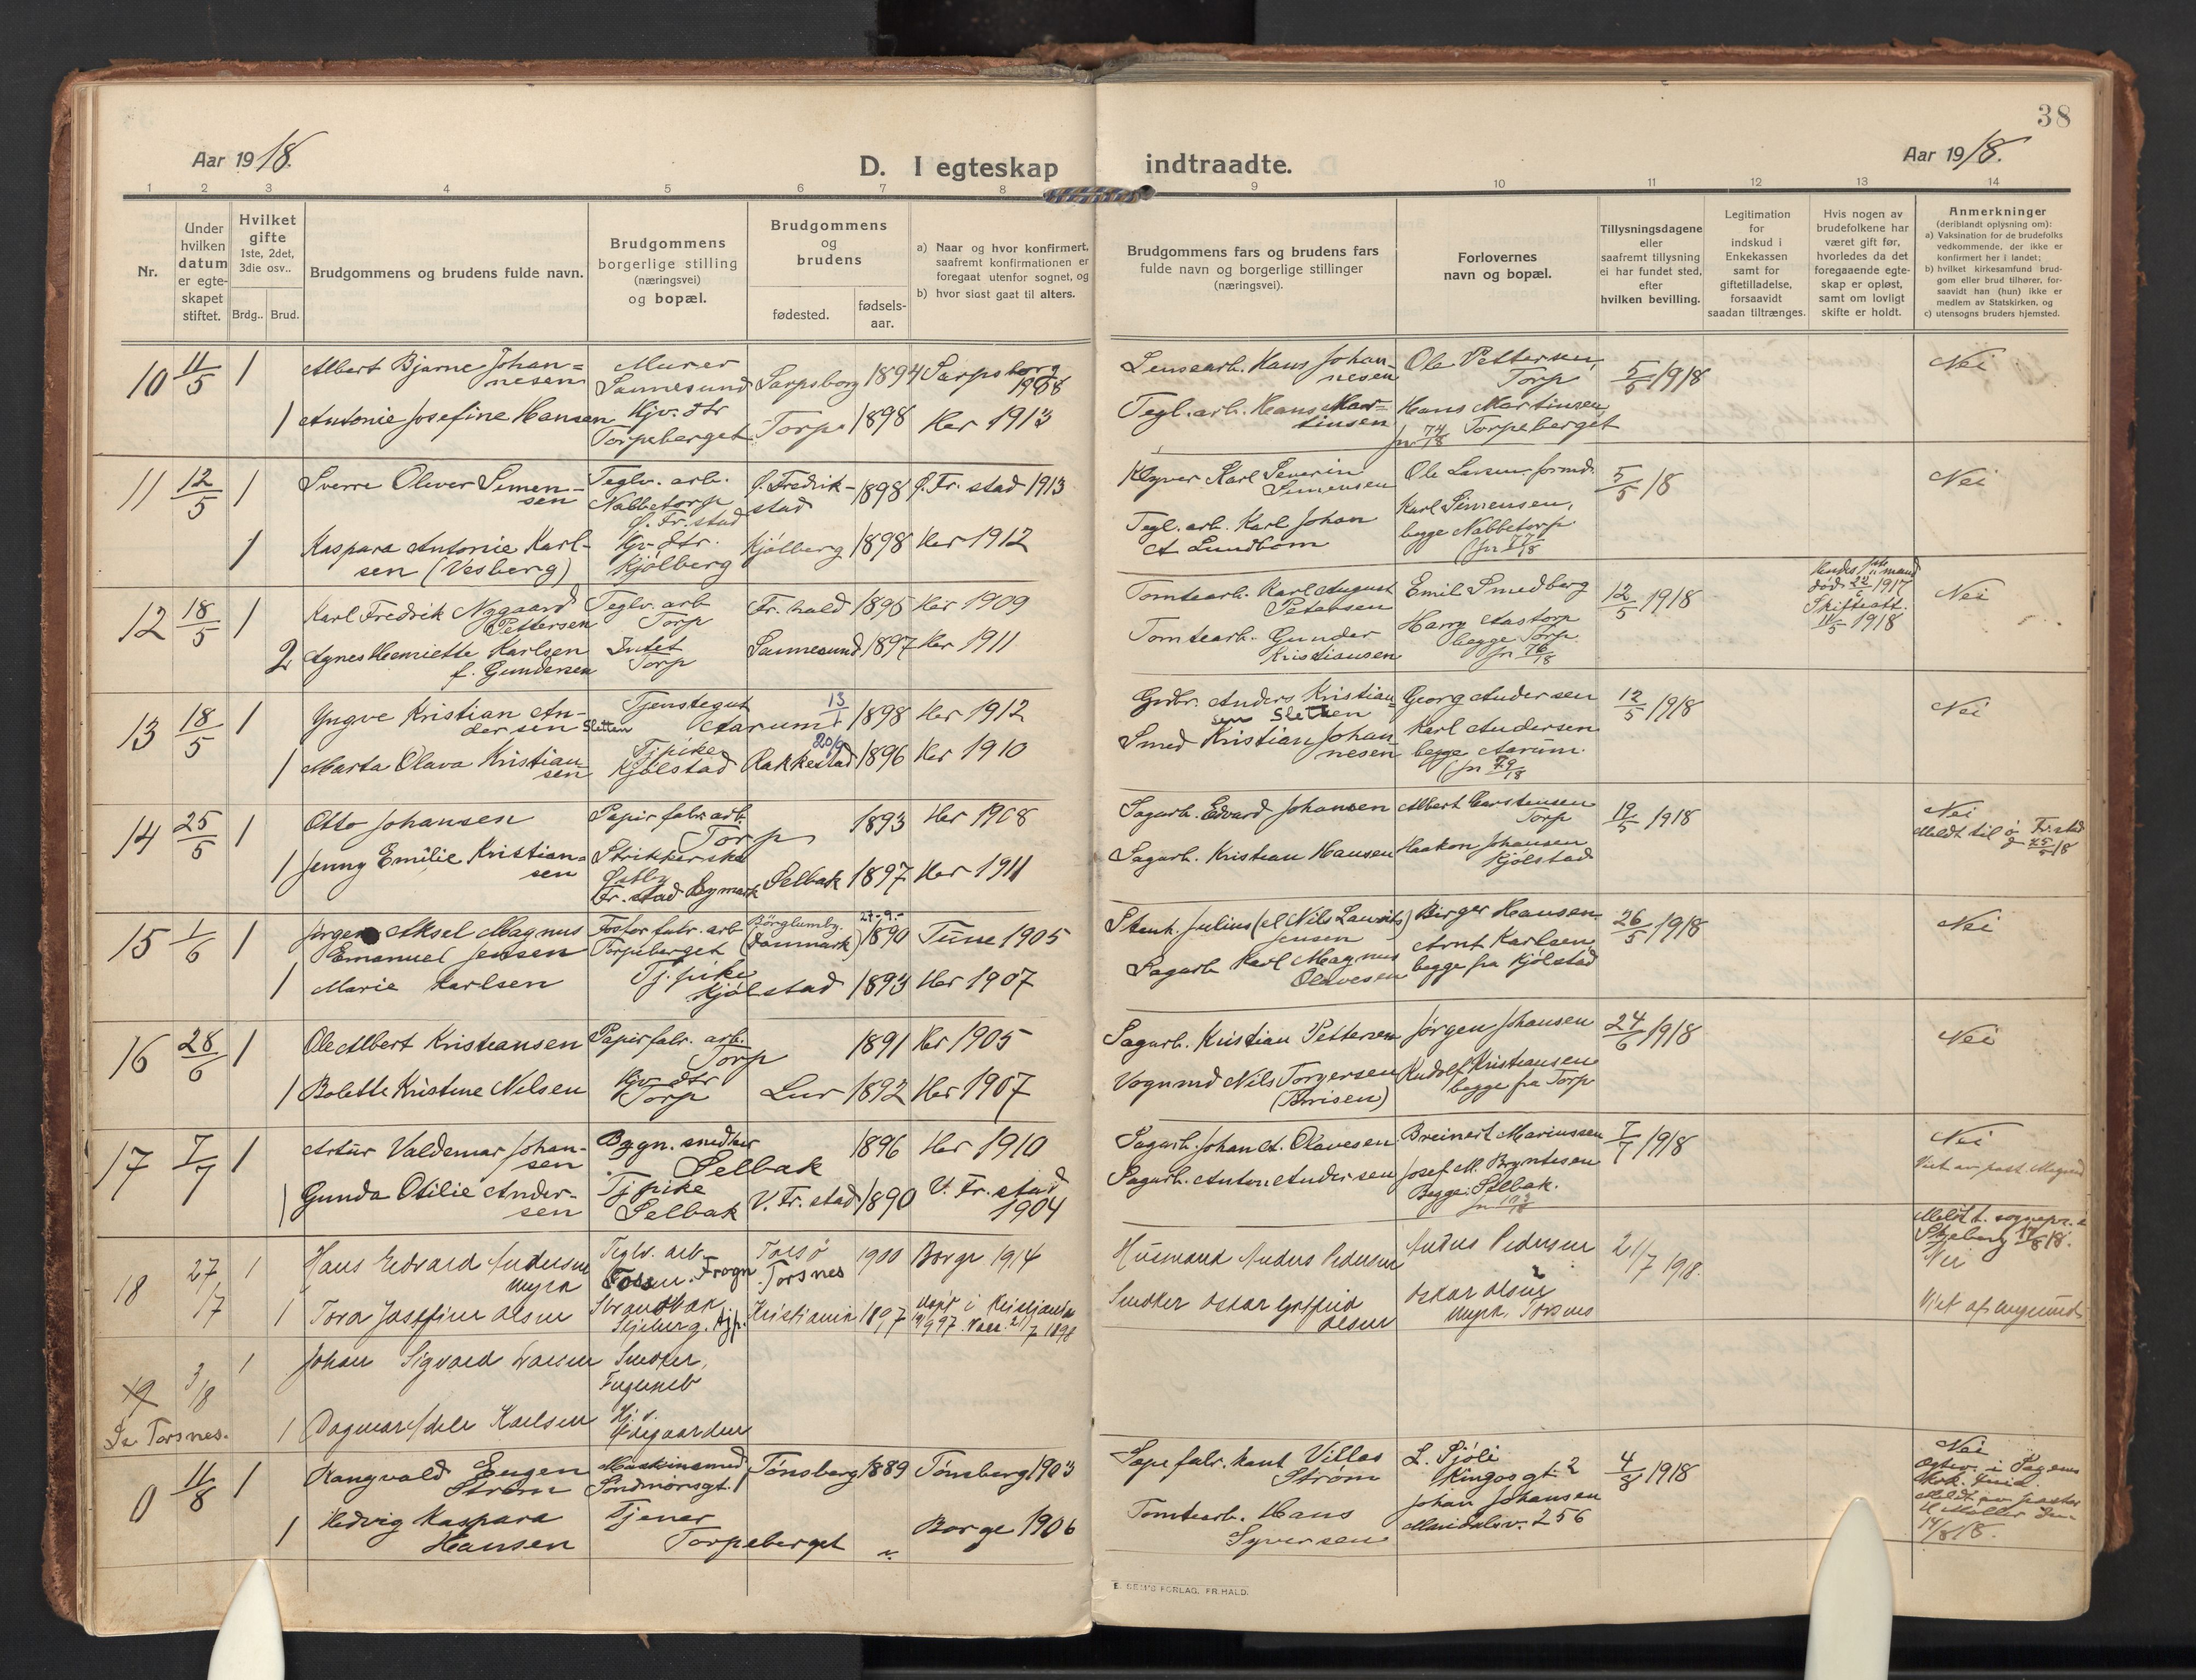 38
Aar 1918.
D. I egteskap indtraadte.
Aar 1918.
1 2 3 4 5 6 7 8 9 10 11 12 13 14
Nr.
Under hvilken datum er egteskapet stiftet.
Hvilket gifte 1ste, 2det, 3die osv..
Brdg.. Brud.
Brudgommens og brudens fulde navn.
Brudgommens borgerlige stilling (næringsvei) og bopæl.
Brudgommens og brudens
fødested.
fødsels-aar.
a) Naar og hvor konfirmert, saafremt konfirmationen er foregaat utenfor sognet, og
b) hvor sidst gaat til alters.
Brudgommens fars og brudens fars fulde navn og borgerlige stillinger (næringsvei).
Forlovernes navn og bopæl.
Tillysningsdagene eller saafremt tillysning ei har fundet sted, efter hvilken bevilling.
Legitimation for indskud i Enkekassen samt for giftetilladelse, forsaavidt saadan tiltrænges.
Hvis nogen av brudefolkene har været gift før, hvorledes da det foregaaende egteskap er opløst, samt om lovligt skifte er holdt.
Anmerkninger (deriblandt oplysning om):
a) Vaksination for de brudefolks vedkommende, der ikke er konfirmert her i landet;
b) hvilket kirkesamfund brudgom eller brud tilhører, forsaavidt han (hun) ikke er medlem av Statskirken, og
c) utensogns bruders hjemsted.
10 11/5 1 Albert Bjarne Johannesen Murer Sannesund Sarpsborg 1894 Sarpsborg 1908 Lensearb. Hans Johannesen Ole Pettersen, Torp 5/5 1918 Nei
1 Antonie Josefine Hansen Gjv. dtr Torpeberget Torp 1898 Her 1913 Tegl.arb. Hans Martinsen Hans Martinsen, Torpeberget jnr 74/18
11 12/5 1 Sverre Oliver Simensen Teglv. arb. Nabbetorp Ø. Fr.stad Ø. Fredrikstad 1898 Ø. Fr.stad 1913 Karl Severin Simensen Ole Larsen, formd. 5/5 18 Nei
1 Kaspara Antonie Karlsen (Vesberg) Gjv. dtr. Kjølberg Kjølberg 1898 Her 1912 Tegl.arb. Karl Johan A Lundbom Karl Simensen, begge Nabbetorp (jnr 77/18
12 18/5 1 Karl Fredrik Nygaard Pettersen Teglv. arb Torp Fr.hald 1895 Her 1909 Tomtearb. Karl August Petersen Emil Smedberg 12/5 1918 død 1917 Skifteatt. 11/5 1918 Nei
2 Agnes Henriette Karlsen f. Gundersen Intet Torp Sannesund 1897 Her 1911 Tomtearb. Gunder Kristiansen Harry Aastorp begge Torp jnr 76/18
13 18/5 1 Yngve Kristian Andersen Sletten Tjenstegut Aarum 13/1 1898 Her 1912 Grdbr. Anders Kristiansen Sletten Georg Andersen 12/5 1918 Nei
1 Marta Olava Kristiansen Tj.pike Kjølstad Rakkestad 20/9 1896 Her 1910 Smed Kristian Johannesen Karl Andersen begge Aarum. (jnr 79/18
14 25/5 1 Otto Johansen Papirfabr. arb. Torp 1893 Her 1908 Sagarb. Edvard Johansen Albert Carstensen Torp 19/5 1918 Nei Meldt til Ø Fr.stad 25/5 18
1 Jenny Emilie Kristiansen Strikkerske Fr.stad Bymark Selbak 1897 Her 1911 Sagarb. Kristian Hansen Haakon Johansen Kjølstad
15 1/6 1 Jørgen Aksel Magnus Emanuel Jensen Fosforfabr. arb Torpeberget Børglumby. (Danmark) 27-9- 1890 Tune 1905 Stenh. Julius (el Nils Laurits) Jensen Birger Hansen 26/5 1918 Nei
1 Marie Karlsen Tj.pike Kjølstad 1893 Her 1907 Sagarb Karl Magnus Olavesen Arnt Karlsen, begge fra Kjølstad
16 28/6 1 Ole Albert Kristiansen Papirfabr. arb. Torp 1891 Her 1905 Sagarb. Kristian Pettersen Jørgen Johansen 24/6 1918 Nei
1 Bolette Kristine Nilsen Gjv. dtr Torp Lur 1892 Her 1907 Vognmd Nils Torgersen Rudolf Kristiansen begge fra Torp
17 7/7 1 Artur Valdemar Johansen Bygn. snedker Selbak 1896 Her 1910 Sagarb. Johan A. Olavesen Breinert Mariussen 7/7 1918 Nei
1 Gunda Otilie Andersen Tj pike Selbak V. Fr.stad 1890 V. Fr.stad 1904 Sagarb. Anton Andersen Josef M. Bryntesen Begge: Selbak.
18 27/7 1 Hans Edvard Andersen Myra Teglv. arb. Torsø Torsnes 1900 Borge 1914 Husmand Anders Pedersen Anders Pedersen 21/7 1918. Meldt t. sognepr. i Skjeberg 14/8 18. Nei
1 Tora Josefine Olsen Skjeberg. Kristiania 1897 Døpt i Kristiania Snedker Oskar Gotfried Olsen Oskar Olsen Myra, Torsnes
19 3/8 1 Johan Sigvard Larsen Snedker, Fuglevik
Se Torsnes. 1 Dagmar Adele Karlsen
0 11/8 1 Rangvald Eugen Strøm Maskinsmed Søndmørsgt. 1 Tønsberg 1889 Tønsberg 1903 Sæpefabrikant Villas Strøm L. Sjøli Kingosgt. 2 4/8 1918 Nei
1 Hedvig Kaspara Hansen Tjener Torpeberget " Borge 1906 Tomtearb. Hans Syversen Johan Johansen Maridalsv. 256 14/8 18.
E. SEM'S FORLAG. FR.HALD.